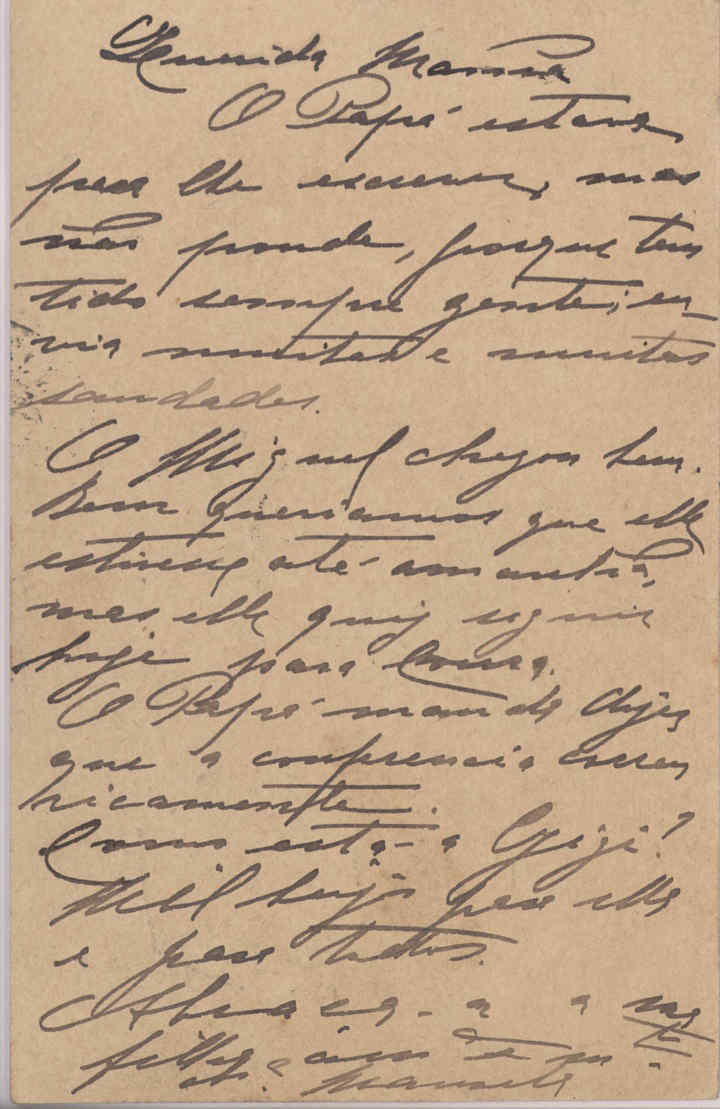 Querida Mamã
O Papá estava
para lhe escrever, mas
não poude, porque tem
tido sempre gente; en-
via muitas e muitas
saudades.
O Miguel chegou bem.
Bem queriamos que elle
estivesse até amanhã,
mas elle quiz seguir
hoje para
O Papá manda dizer
que a conferencia correu
ricamente.
Como está a Gigi?
Mil beijos para ella
e para todos.
Abraça-a a
filha
Manuela